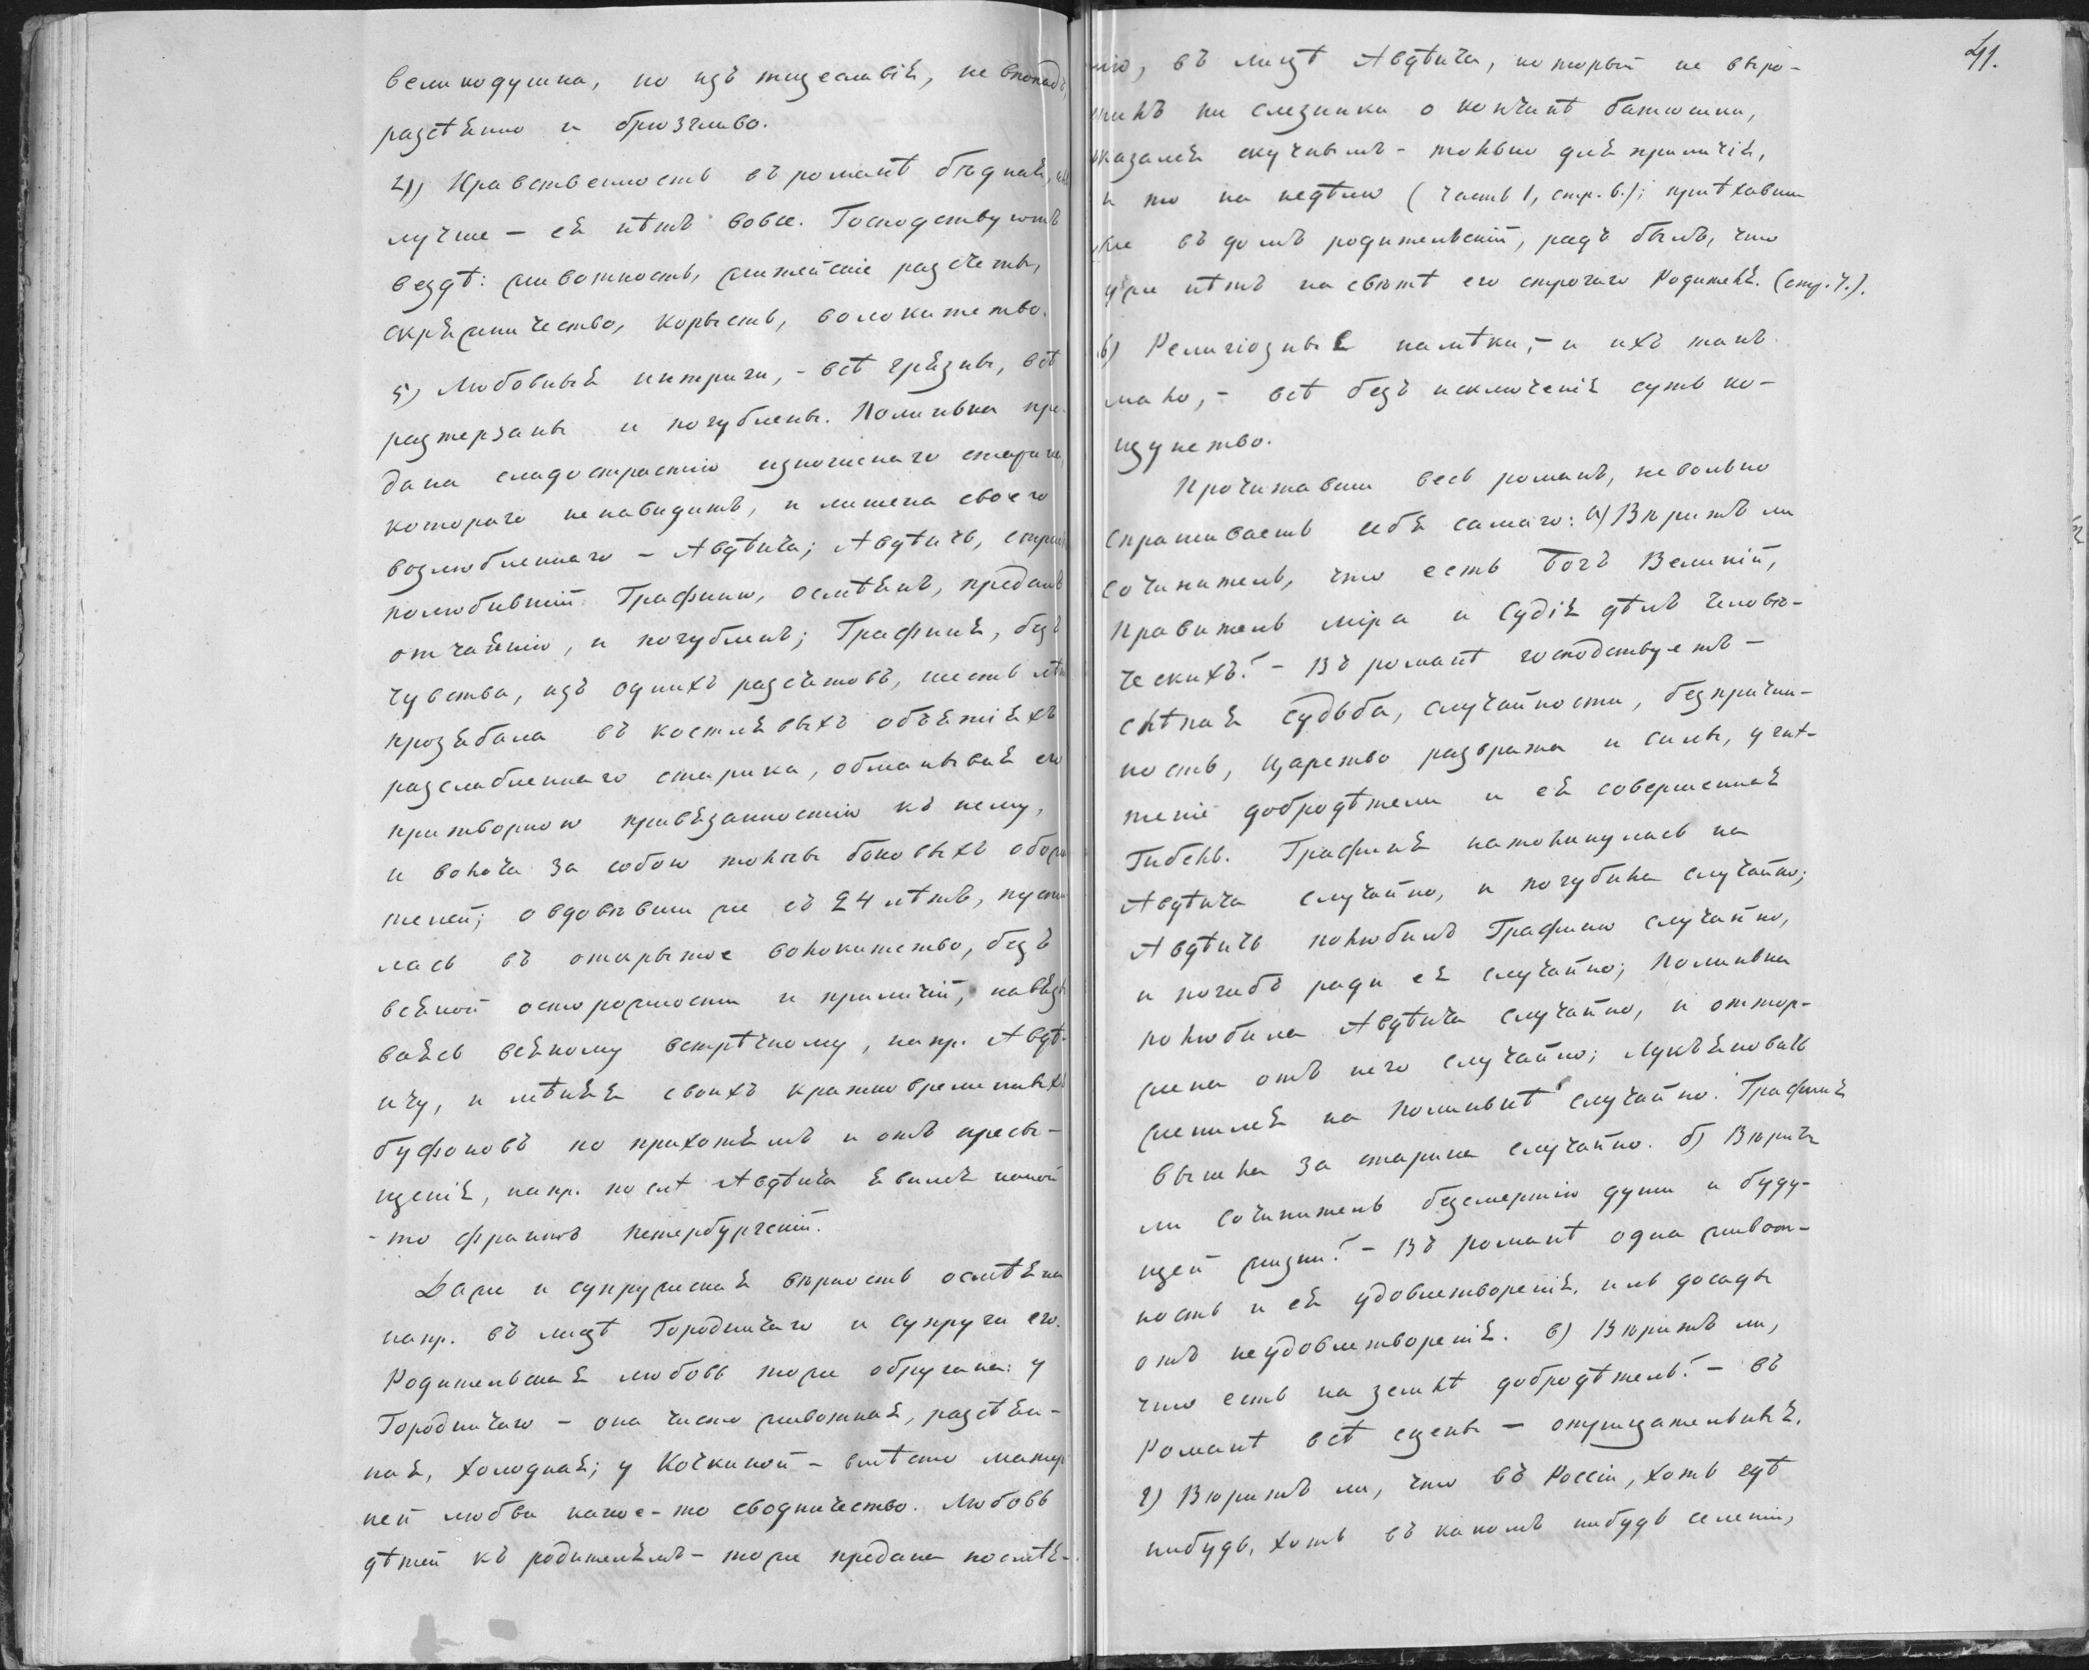 великодушна, но изъ тщеславія, не впопадъ,
разсѣянно и брюзгливо.
4) Нравственность въ романѣ бѣдная,
лучше – ея нѣтъ вовсе. Господствуютъ
вездѣ: животность, житейскіе разсчеты,
скряжничество, корысть, волокитство.
5) Любовныя интриги, - всѣ грязны, всѣ
растерзаны и погублены. Полинька пре-
дана сладострастію изношеннаго старика,
котораго ненавидитъ, и лишена своего
возлюбленнаго – Авдѣича; Авдѣичъ,
полюбившій Графиню, осмѣянъ, преданъ
отчаянію, и погубленъ; Графиня, безъ
чувства, изъ однихъ разсчетовъ, шесть лѣтъ
прозябала въ костлявыхъ объятіяхъ
разслабленнаго старика, обманывая его
притворною привязанностію къ нему,
и волоча за собою толпы боковыхъ обожа
телей; овдовѣвши же съ 24 лѣтъ, пусти
лась въ открытое волокитство, безъ
всякой осторожности и приличій, навязы
ваясь всякому встрѣчному, напр. Авдѣ-
ичу, и мѣняя своихъ кратковременныхъ
буфоновъ по прихотямъ и отъ пресы-
щенія, напр. послѣ Авдѣича явился какой
-то франтъ Петербургскій.
Даже и супружеская вѣрность осмѣяна
напр. въ лицѣ Городничаго и супруги его.
Родительская любовь тоже обругана: у
Городничаго – она чисто животная, разсѣян-
ная, холодная; у Кочкиной – вмѣсто матер
ней любви какое-то сводничество. Любовь
дѣтей къ родителямъ – тоже предана посмѣя-
41.
нію, въ лицѣ Авдѣича, который не выро-
нилъ ни слезинки о кончинѣ батюшки,
казался скучнымъ – только для приличія,
и то на недѣлю (часть 1, стр. 6.); пріѣхавши
же въ домъ родительскій, радъ былъ, что
уже нѣтъ на свѣтѣ его строгаго Родителя. (стр. 7.).
6) Религіозныя намѣки, – и ихъ такъ
мало, – всѣ безъ исключенія суть ко-
щунство.
Прочитавши весь романъ, невольно
спрашиваешь себя самаго: а) Вѣритъ ли
сочинитель, что есть Богъ Великій,
Правитель міра и Судія дѣлъ человѣ-
ческихъ? – Въ романѣ господствуетъ –
слѣпая судьба, случайности, безпричин-
ность, царство разврата и силы, угнѣ-
теніе добродѣтели и ея совершенная
гибель. Графиня натолкнулась на
Авдѣича случайно, и погубила случайно;
Авдѣичъ полюбилъ Графиню случайно,
и погибъ ради ея случайно; Полинька
полюбила Авдѣича случайно, и оттор-
жена отъ него случайно; Лукьяновичъ
женился на Полинькѣ случайно. Графиня
вышла за старика случайно. б) Вѣритъ
ли сочинитель безсмертію души и буду-
щей жизни? – Въ романѣ одна живот-
ность и ея удовлетворенія, иль досады
отъ неудовлетворенія. в) Вѣритъ ли,
что есть на землѣ добродѣтель? – въ
Романѣ всѣ сцены – отрицательныя.
г) Вѣритъ ли, что въ Россіи, хоть гдѣ
нибудь, хоть въ какомъ нибудь селеніи,